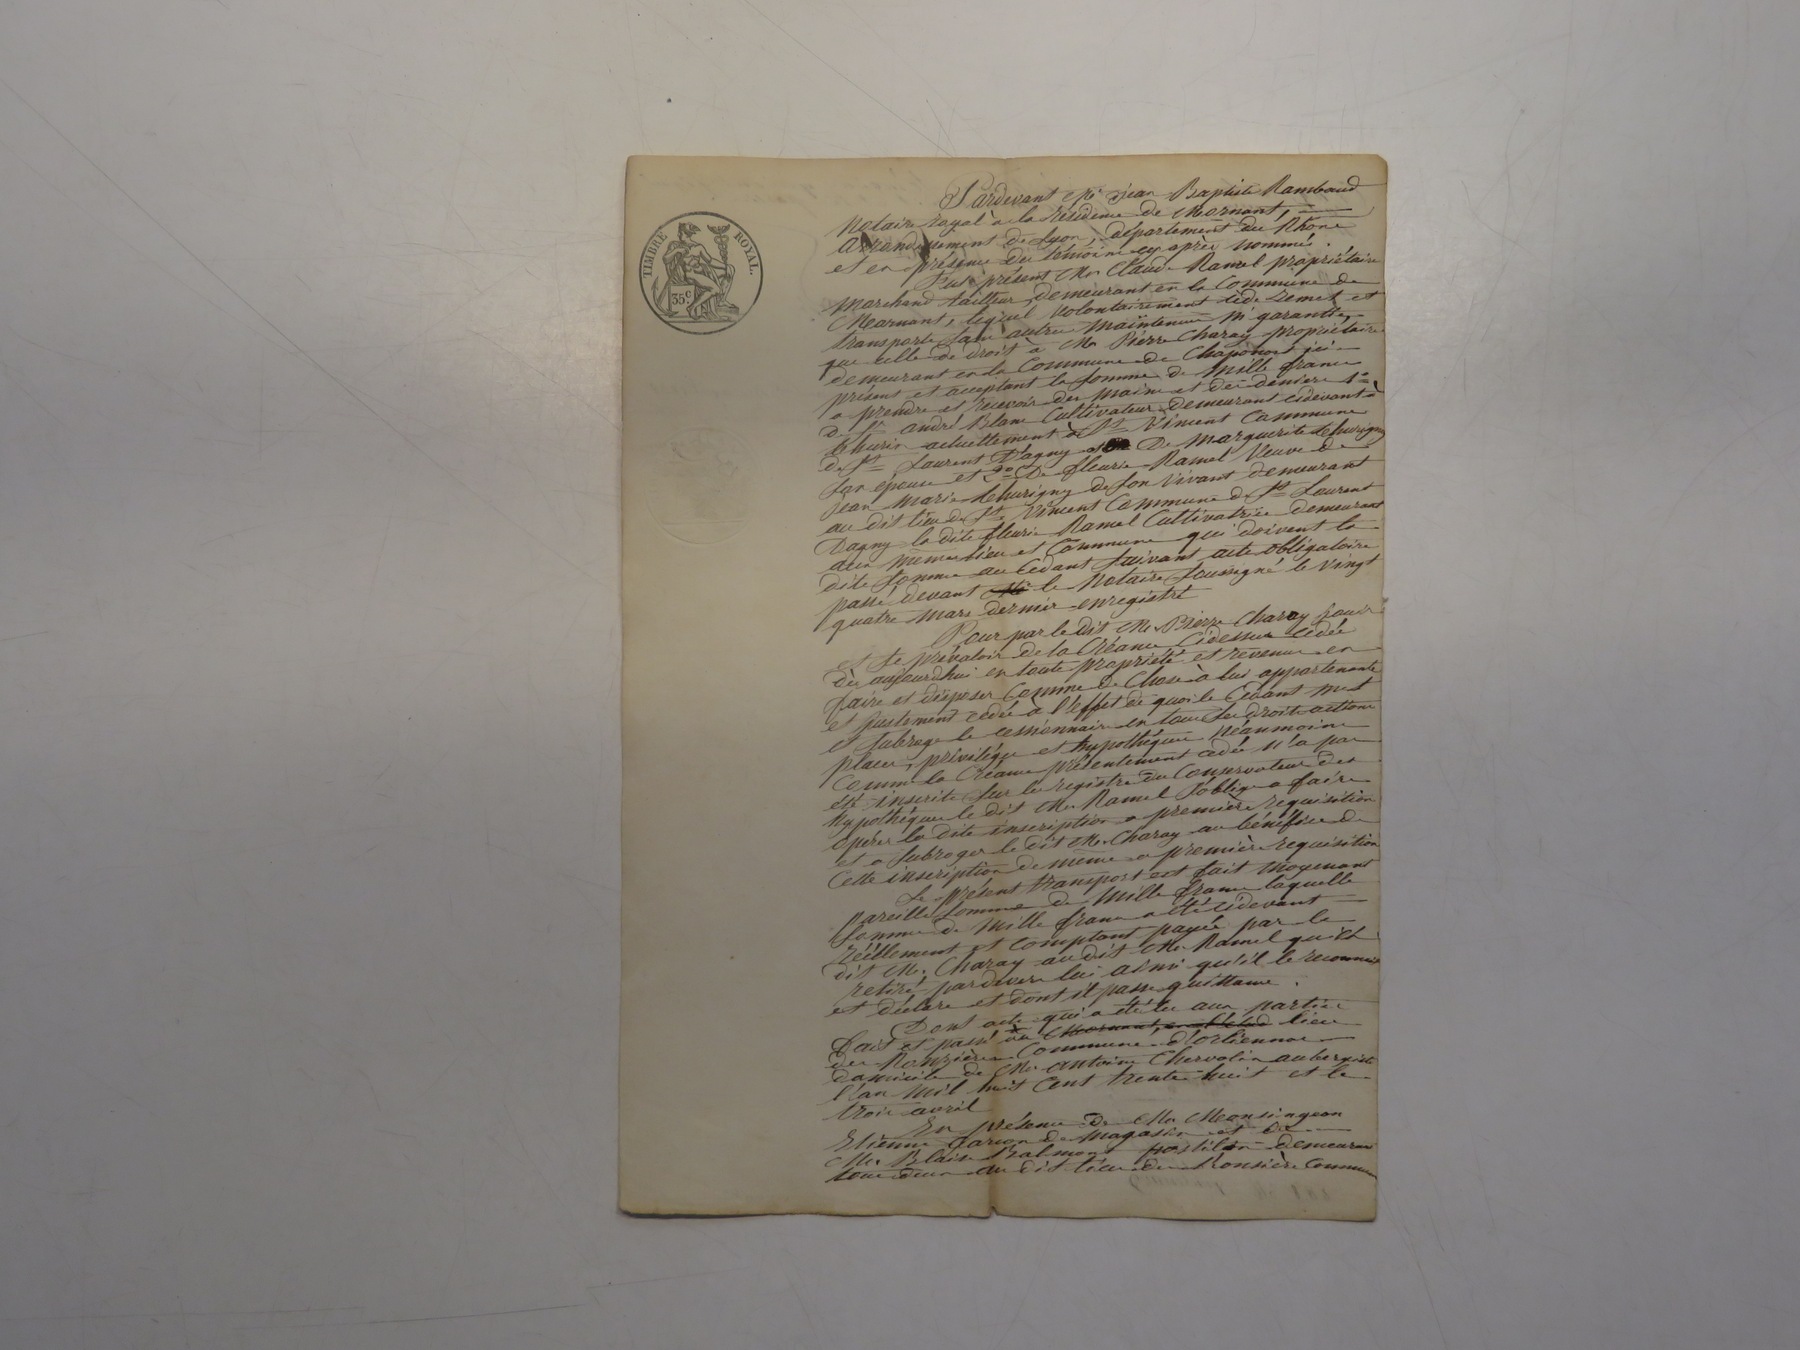 TIMBRE ROYAL.
35c.
Pardevant Me Jean Baptiste Rambaud
Notaire royal à la résidence de Mornant,
arrondissement de Lyon, département du Rhône
et en présence des témoins cy après nommés.
Fut présent Mr Claude Ramel propriétaire
marchand tailleur, demeurant en la Commune de
Mornant, lequel volontairement cède remet et
transporte sans autre maintenue ni garantie,
que celle de droit à Mr Pierre Charay propriétaire
demeurant en la Commune de Chaponost ici
présent et acceptant la somme de mille francs
a prendre et recevoir des mains et des deniers 1º
de Sr andré Blanc Cultivateur demeurant cidevant à
Thurin actuellement à St Vincent Commune
de St Laurent Dagny De Marguerite
son épouse et 2º De fleurie Ramel Veuve de
jean Marie de son vivant demeurant
au dit lieu de St Vincent Commune de St Laurent
Dagny la dite fleurie Ramel Cultivatrice demeurant
aux mêmes lieu et Commune qui doivent la
dite somme au Cédant suivant acte obligatoire
passé devant le Notaire soussigné le vingt
quatre mars dernier enregistré
Pour par le dit Mr Pierre Charay jouir
et se prévaloir de la Créance cidessus cédée
dès aujourdhui en toute propriété et revenus en
faire et disposer Comme de Chose à lui appartenante
et justement cédée à l'effet de quoi le Cédant met
et subroge le cessionnaire en tous ses droits actions
places, privilèges et hypothèques Néanmoins
Comme la Créance présentement cédée n'a pas
été inscrite sur les registres du Conservateur des
hypothèques le dit Mr Ramel s'oblige a faire
opérer la dite inscription a première requisition
et a subroger le dit Mr Charay au bénéfice de
Cette inscription de même a première requisition
Le présent transport est fait moyenant
pareille somme de mille francs laquelle
somme de mille francs a été cidevant
réellement et comptant payée par le
dit Mr Charay au dit Mr Ramel qui l'a
retiré pardevers lui ainsi qu'il le reconnait
et déclare et dont il passe quittance.
Dont acte qui a été lu aux parties
fait et passé au Mornant, lieu
des Ronzières Commune d'Orliennas
domicile de Mr antoine Chervolin aubergiste
l'an mil huit Cent trente huit et le
trois avril
En présence de Mr Monsingeon
Etienne garçon de magasin et de
Mr Blaise Balmont postillon demeurant
tous deux au dit lieu des Ronsières Commune